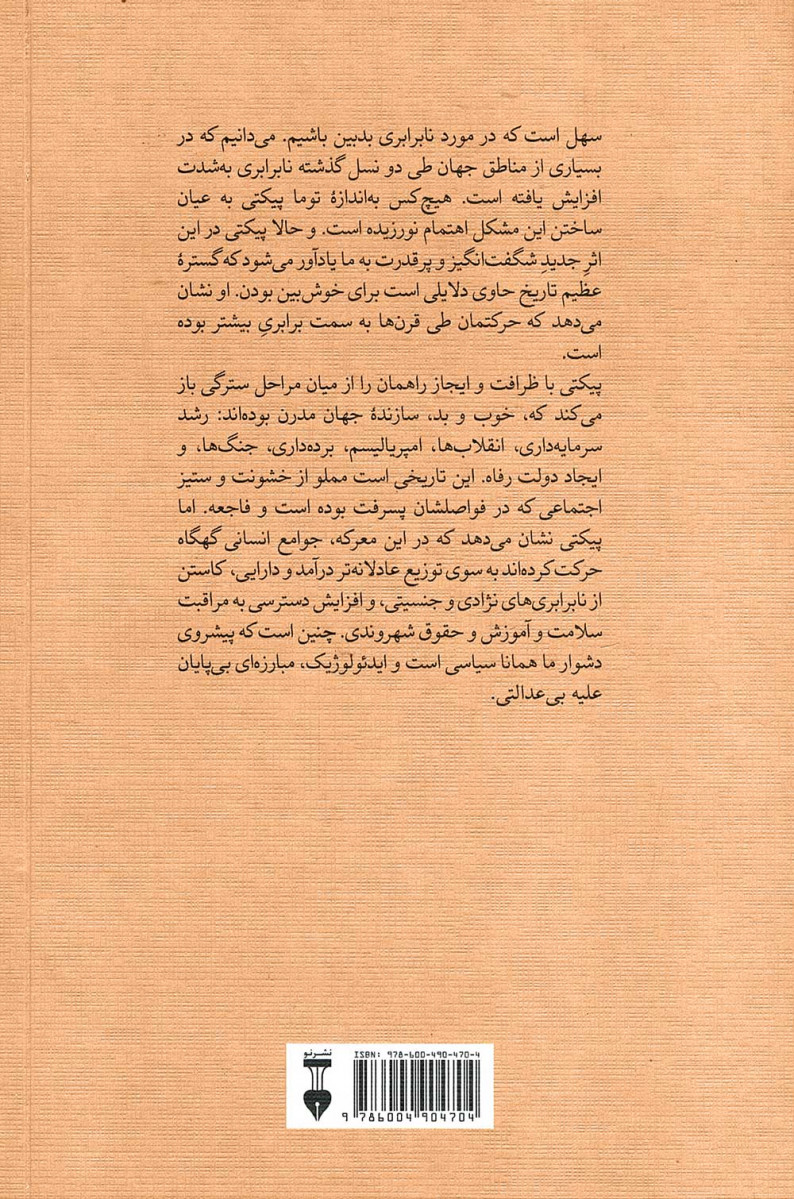 سهل است که در مورد نابرابری بدبین باشیم. می‌دانیم که در
بسیاری از مناطق جهان طی دو نسل گذشته نابرابری به‌شدت
افزایش یافته است. هیچ‌کس به‌اندازهٔ توما پیکتی به عیان
ساختن این مشکل اهتمام نورزیده است. و حالا پیکتی در این
اثرِ جدیدِ شگفت‌انگیز و پرقدرت به ما یادآور می‌شود که گسترهٔ
عظیم تاریخ حاوی دلایلی است برای خوش‌بین بودن. او نشان
می‌دهد که حرکتمان طی قرن‌ها به سمت برابریِ بیشتر بوده
است.
پیکتی با ظرافت و ایجاز راهمان را از میان مراحل سترگی باز
می‌کند که، خوب و بد، سازندهٔ جهان مدرن بوده‌اند: رشد
سرمایه‌داری، انقلاب‌ها، امپریالیسم، برده‌داری، جنگ‌ها، و
ایجاد دولت رفاه. این تاریخی است مملو از خشونت و ستیز
اجتماعی که در فواصلشان پسرفت بوده است و فاجعه. اما
پیکتی نشان می‌دهد که در این معرکه، جوامع انسانی گهگاه
حرکت کرده‌اند به سوی توزیع عادلانه‌تر درآمد و دارایی، کاستن
از نابرابری‌های نژادی و جنسیتی، و افزایش دسترسی به مراقبت
سلامت و آموزش و حقوق شهروندی. چنین است که پیشروی
دشوار ما همانا سیاسی است و ایدئولوژیک، مبارزه‌ای بی‌پایان
علیه بی‌عدالتی.
نشرنو
ISBN: 978-600-490-470-4
9 786004 904704